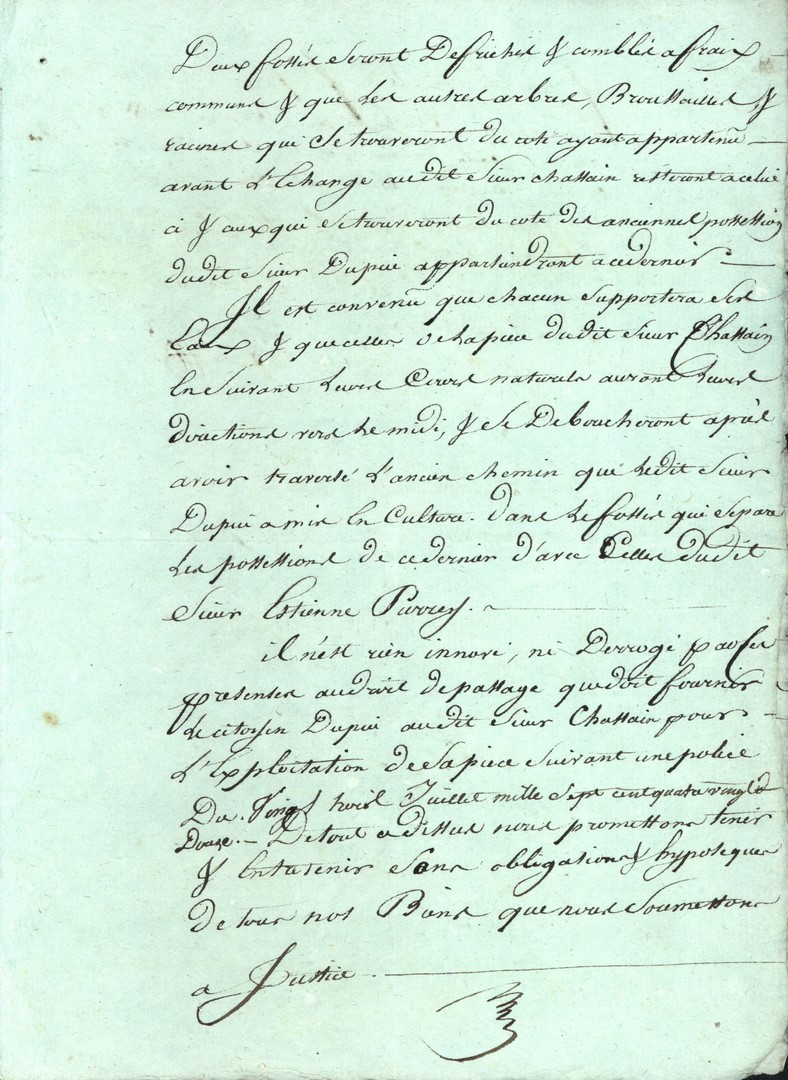 Deux fossés seront Defrichés & comblés a fraix
communs & que les autres arbres, Broussailles &
racines qui se trouveront du coté ayant appartenu
avant L'Echange audit Sieur chassain resteront a celui
ci & aux qui se trouveront du coté des anciennes possession
dudit Sieur Dupui appartiendront a ce dernier
Il est convenu que chacun supportera ses
Eaux & que celles de la piece dudit Sieur Chassain
En suivant Leurs Cours naturels auront Leurs
directions vers Le midi, & se Deboucheront après
avoir traversé L'ancien chemin que Ledit Sieur
Dupui a mis En Culture. dans Le fossés qui separe
Les possessions de ce dernier d'avec Celles dudit
Sieur Estienne Purrey.
il n'est rien innové, ni Derrogé par Les
presentes au droit de passage que doit fournir
Le citoyen Dupui audit Sieur Chassain pour
L'Exploitation de sa piece suivant une police
Du Vingt huit Juillet mille sept cent quatre vingt
Douze. - De tout ce dessus nous promettons tenir
& Entretenir sous obligations & hypoteques
de tous nos Biens que nous Soumettons
a Justice